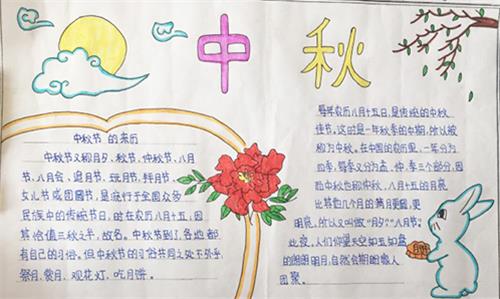 中秋
中秋节的来历
中秋节又称月夕、秋节、仲秋节、八月
节、八月会、追月节、玩月节、拜月节、
女儿节或团圆节,是流行于全国众多
民族中的传统节日,时在农历八月十五,因
其恰值三秋之半,故名。中秋节到了,各地都
有自己的习俗。但中秋节的习俗共同之处不外乎
祭月、赏月、观花灯、吃月饼。
每年农历八月十五日,是传统的中秋
佳节。这时是一年秋季的中期,所以被
称为中秋。在中国的农历里,一年分为
四季,每季又分为孟、仲、季三个部分,因
而中秋也称仲秋。八月十五的月亮
比其他几个月的满月更圆,更
明亮,所以又叫做“月夕”“八月节”。
此夜,人们仰望天空如玉如盘
的朗朗明月,自然会期盼家人
团聚。